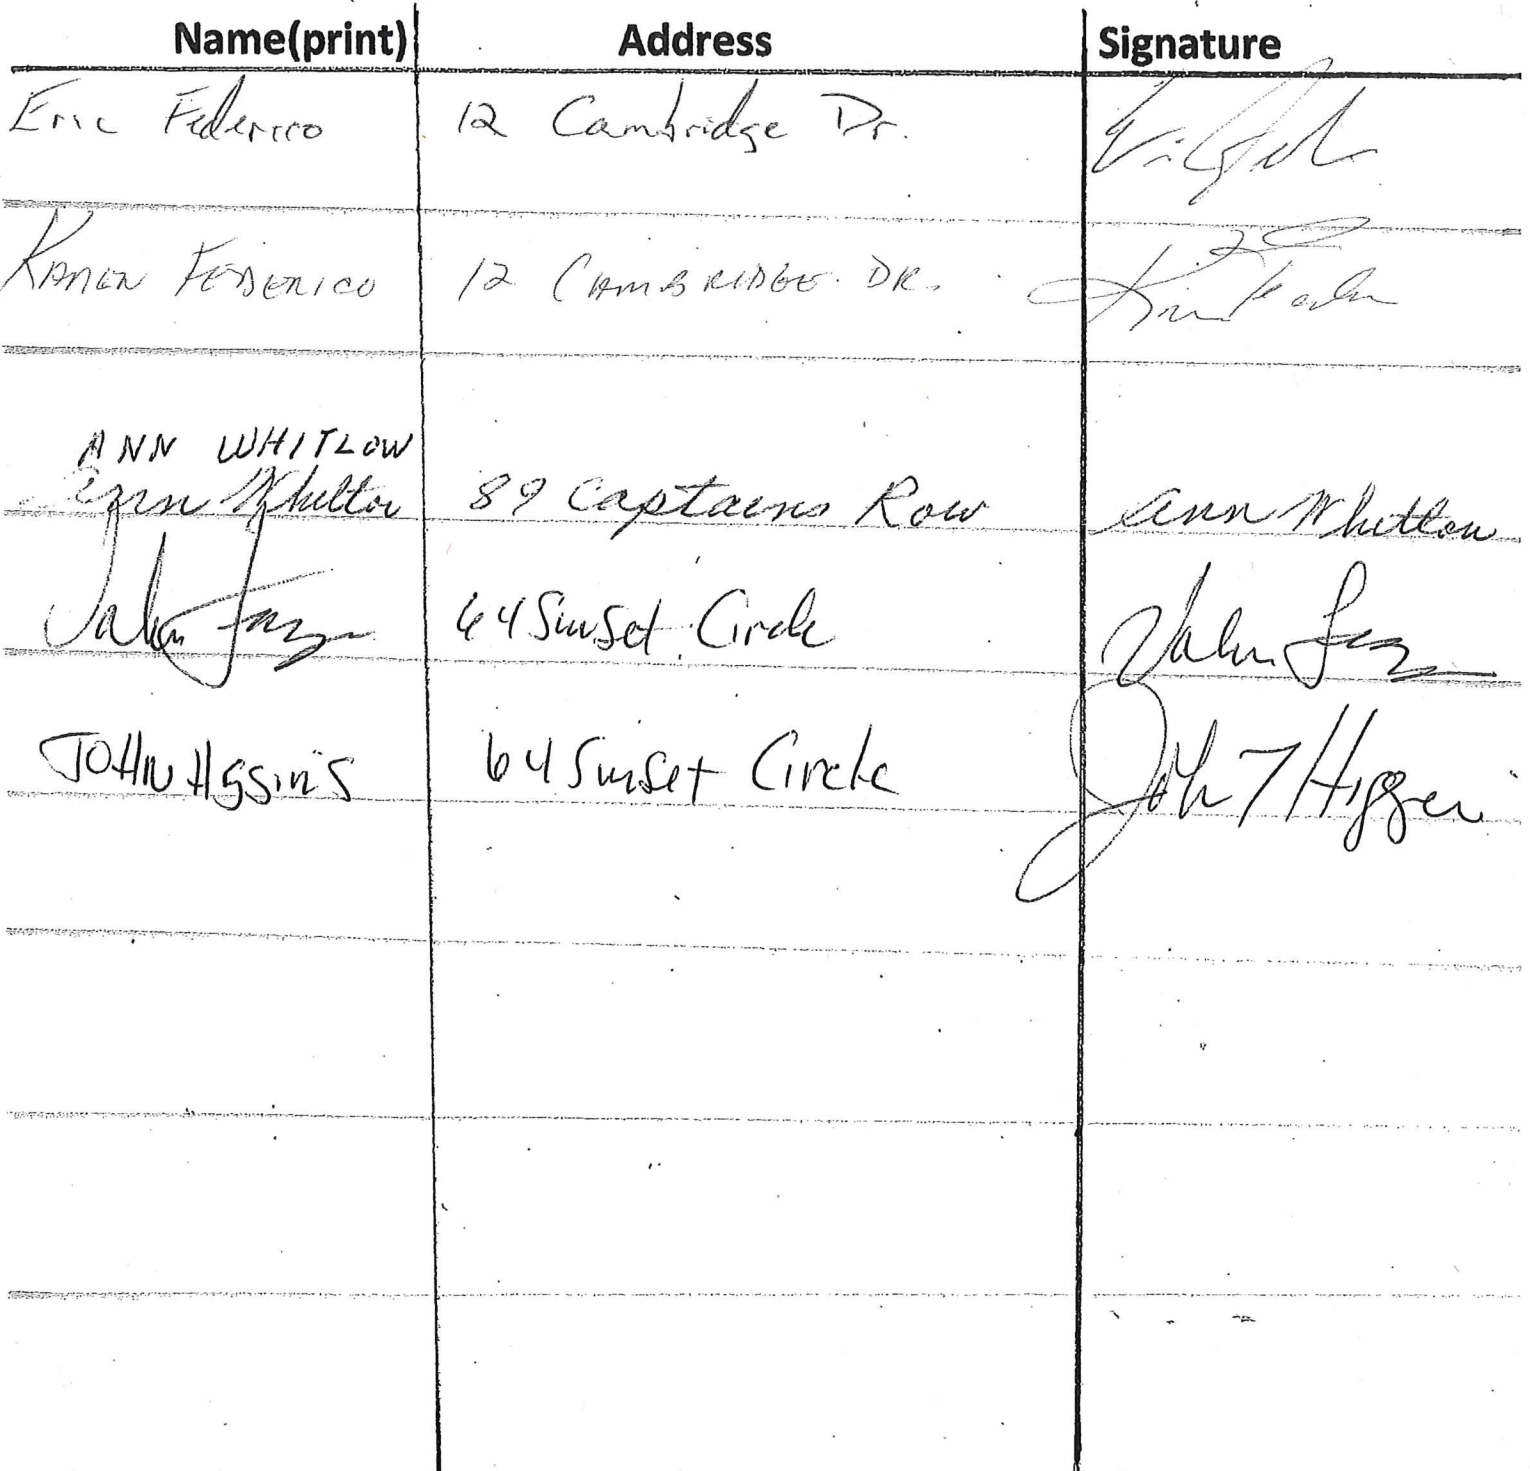 Name(print) Address Signature
Eric Federico 12 Cambridge Dr.
KAREN FEDERICO 12 CAMBRIDGE DR.
ANN WHITLOW
Ann Whitlow 89 Captains Row Ann Whitlow
64 Sunset Circle
JOHN HIggins 64 Sunset Circle John T Higgins